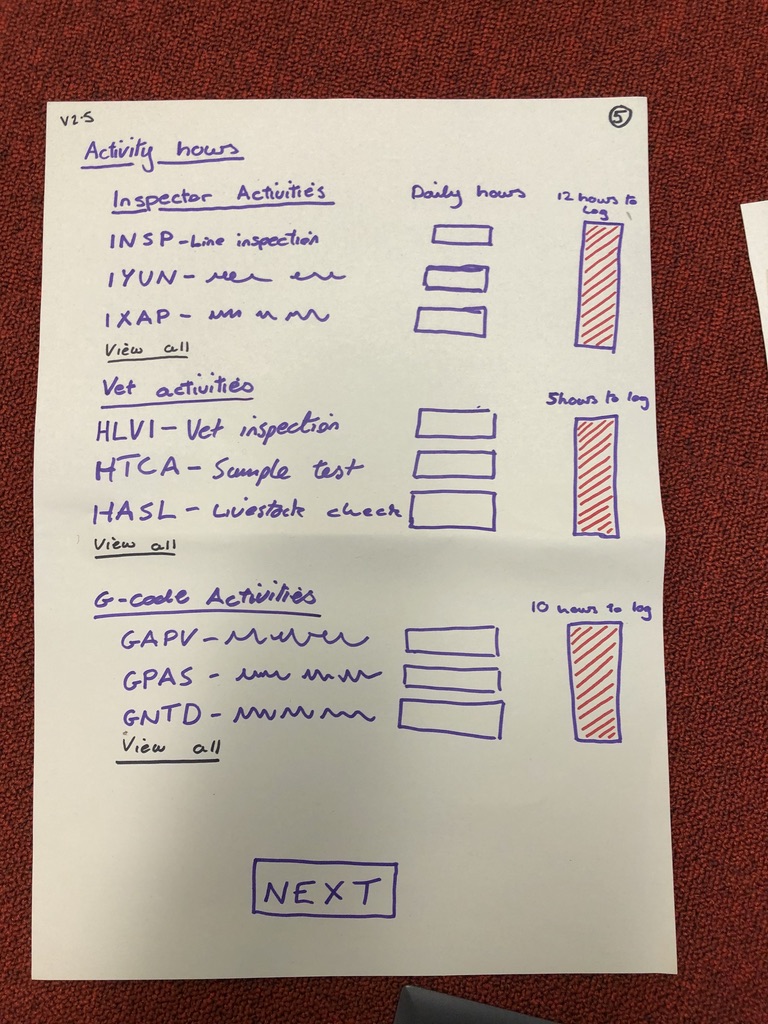 V2.5
5
Activity hours
Inspector Activities
Daily hours
12 hours to
log
INSP - Line inspection
IYUN -
IXAP -
View all
Vet activities
5 hours to log
HLVI - Vet inspection
HTCA - Sample test
HASL - Livestock check
View all
G-code Activities
10 hours to log
GAPV -
GPAS -
GNTD -
View all
NEXT